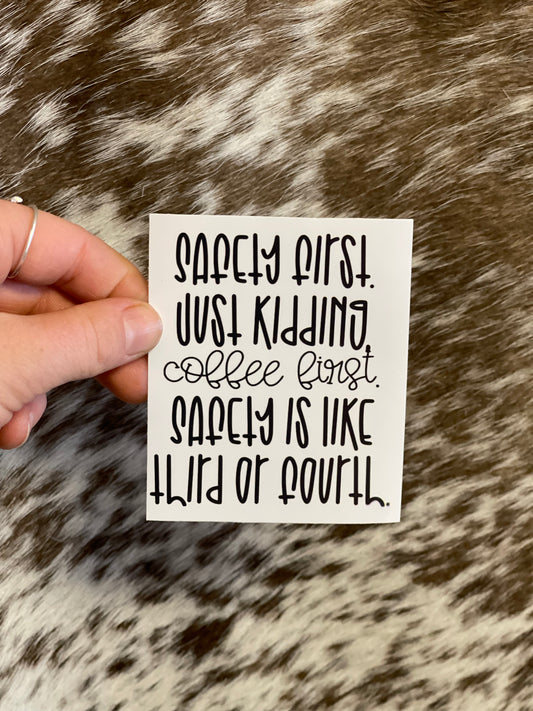 Safety first.
Just kidding,
coffee first.
Safety is like
third or fourth.